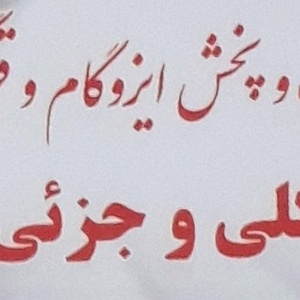 و پخش ایزوگام و
کلی و جزئی